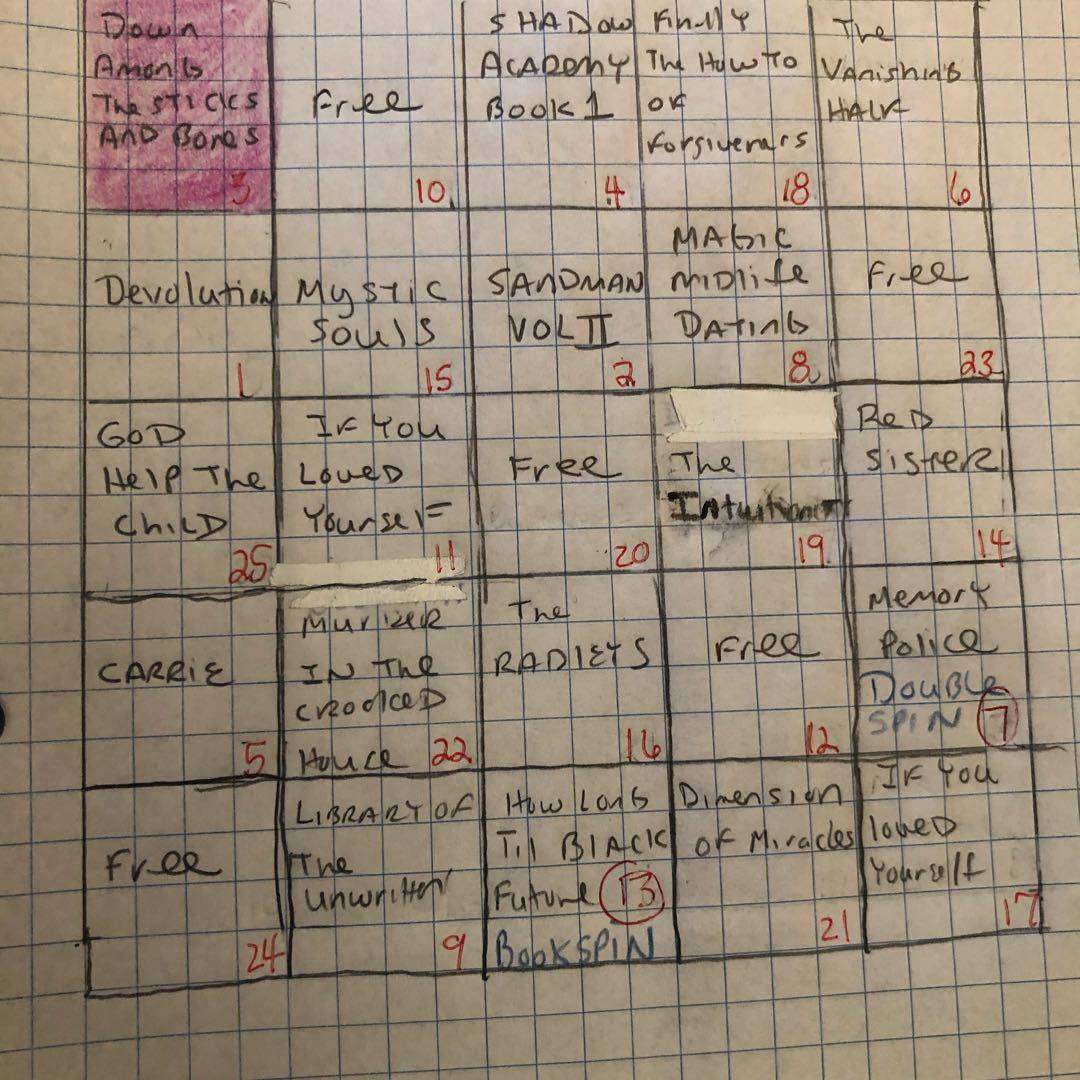 Down
Among
The Sticks
And Bones
3
Free
10
SHADOW
ACADEMY
BOOK 1
4
Finlly
The How To
of
Forgivenars
18
The
Vanishing
HALF
6
Devolution
1
Mystic
Souls
15
SANDMAN
VOL II
2
MAGIC
MIDlife
DATING
8
Free
23
GOD
Help The
Child
25
If You
Loved
Yourself
11
Free
20
The
Intuitionist
19
Red
Sister
14
CARRIE
5
Murder
IN The
Crooked
House 22
The
RADLEYS
16
Free
12
Memory
Police
Double
SPIN 7
Free
24
LIBRARY OF
The
Unwritten
9
How Long
Til Black
Future 13
BookSPIN
Dimension
of Miracles
21
If You
loved
Yourself
17